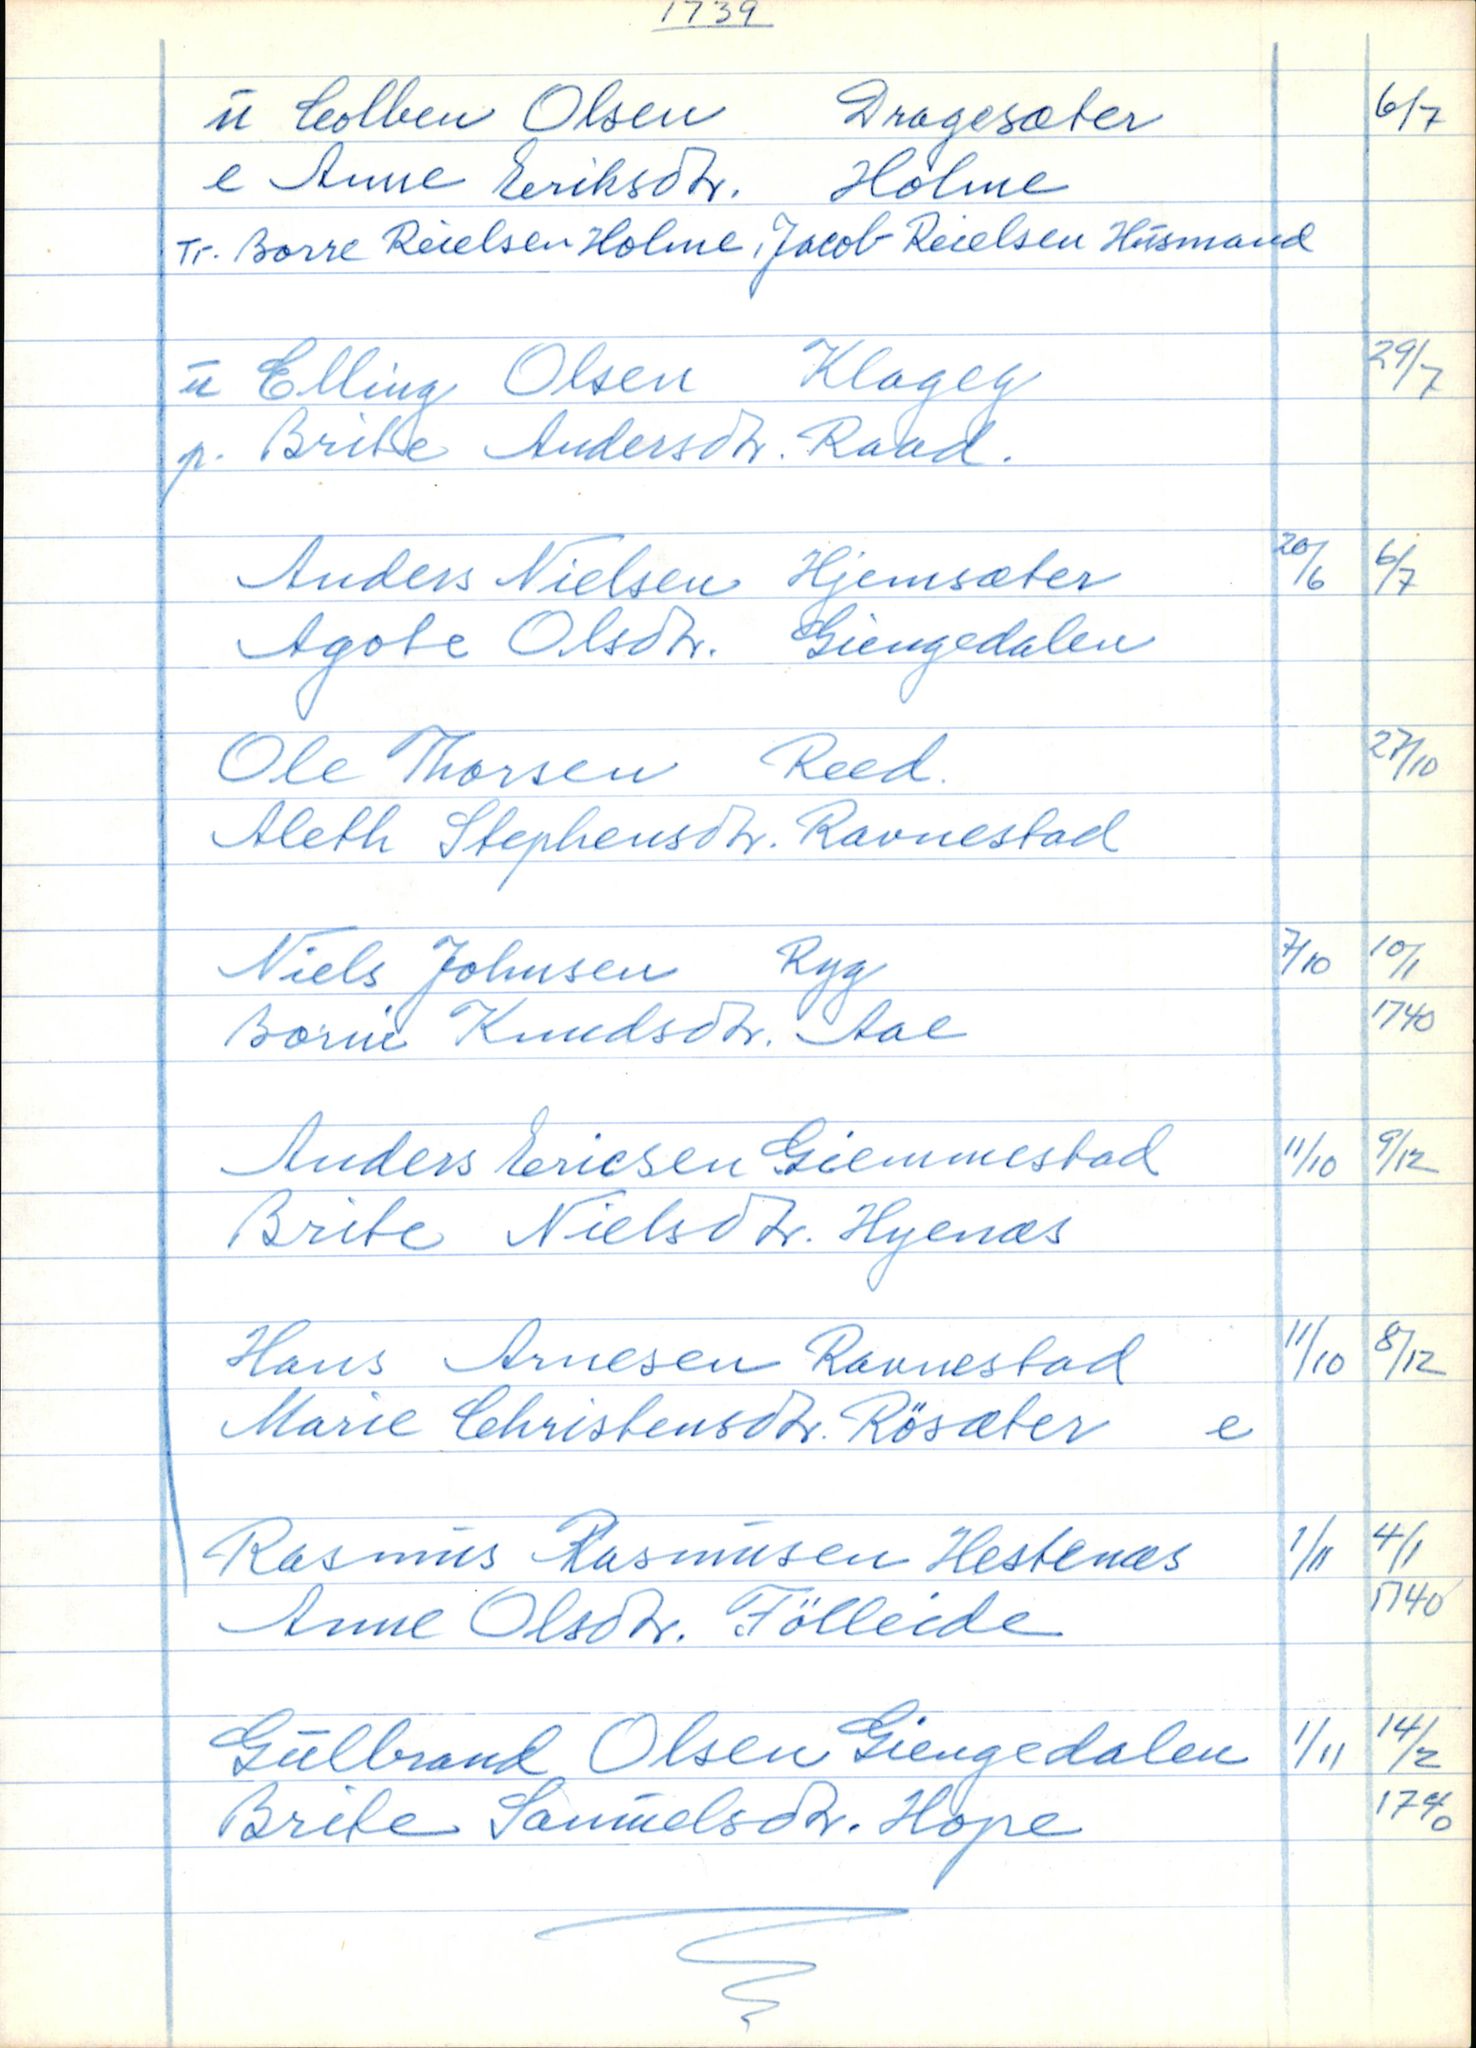 1739
ü Colben Olsen Dragesæter 6/7
e Anne Eriksdtr. Holme
Tr. Børre Reielsen Holme, Jacob Reielsen Hüsmand
ü Elling Olsen Klageg 29/7
p. Brite Andersdtr. Raad.
Anders Nielsen Hjemsæter 20/6 6/7
Agote Olsdtr. Giengedalen
Ole Thorsen Reed. 27/10
Aleth Stephensdtr. Ravnestad
Niels Johnsen Ryg 7/10 10/1
Knudsdtr. Aae 1740
Anders Ericsen Giemmestad 11/10 9/12
Brite Nielsdtr. Hyenæs
Hans Arnesen Ravnestad 11/10 8/12
Marie Christensdtr. Rösæter e
Rasmüs Rasmüsen Hestenæs 1/11 4/1
Anne Olsdtr. Fölleide 1740
Gülbrand Olsen Giengedalen 1/11 14/2
Brite Samüelsdtr. Hope 1740